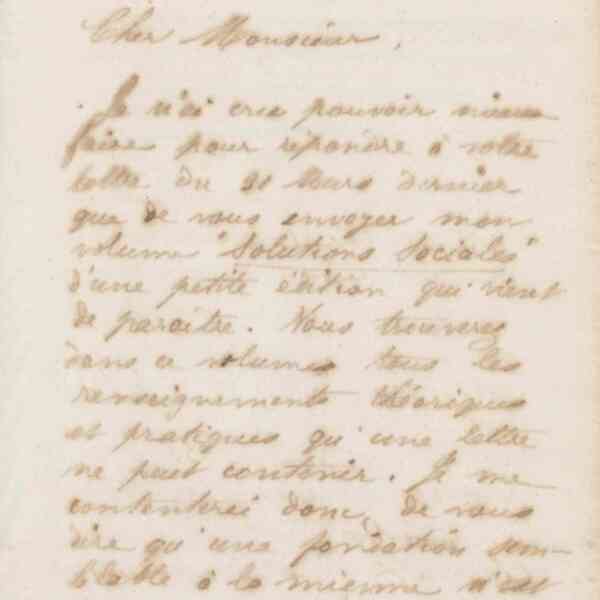 Cher Monsieur,
Je n'ai cru pouvoir mieux
faire pour répondre à votre
lettre du 21 Mars dernier
que de vous envoyer mon
volume "Solutions Sociales"
d'une petite édition qui vient
de paraître. Vous trouverez
dans ce volume tous les
renseignements théoriques
et pratiques qu'une lettre
ne peut contenir. Je me
contenterai donc, de vous
dire qu'une fondation sem-
blable à la mienne n'est